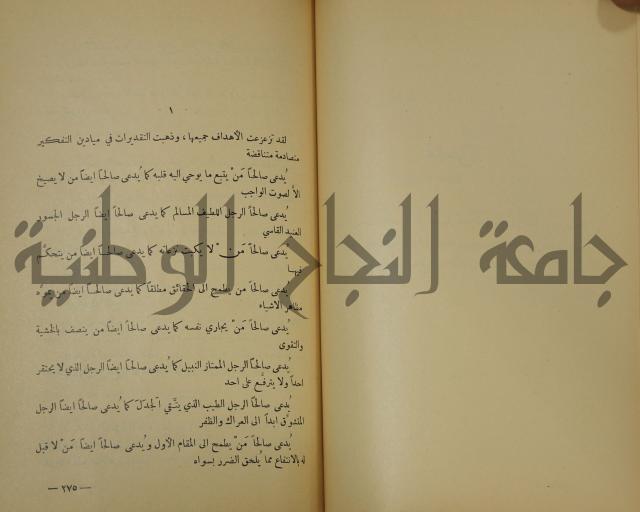 ١
لقد تزعزعت الأهداف جميعها، وذهبت التقديرات في ميادين التفكير
متصادمة متناقضة
يُدعى صالحاً مَنْ يتبع ما يوحي اليه قلبه كما يُدعى صالحاً ايضاً من لا يصيخ
الا لصوت الواجب
يُدعى صالحاً الرجل اللطيف المسالم كما يدعى صالحاً ايضاً الرجل الجسور
العنيد القاسي
يُدعى صالحاً مَنْ لا يكبت نزعاته كما يدعى صالحاً ايضاً من يتحكّم
فيها
يدعى صالحاً من يطمح الى الحقائق مطلقاً كما يدعى صالحاً ايضاً من
مظاهر الاشياء
يُدعى صالحاً مَنْ يجاري نفسه كما يدعى صالحاً ايضاً من يتصف بالخشية
والتقوى
يُدعى صالحاً الرجل الممتاز النبيل كما يُدعى صالحاً ايضاً الرجل الذي لا يحتقر
احداً ولا يترفّع على احد
يُدعى صالحاً الرجل الطيب الذي يتّقي الجدل كما يُدعى صالحاً ايضاً الرجل
المتشوّق ابداً الى العراك والظفر
يُدعى صالحاً مَنْ يطمح الى المقام الأول ويُدعى صالحاً ايضاً مَنْ لا قبل
له بالانتفاع مما يُلحق الضرر بسواه
— ٢٧٥ —
جامعة النجاح الوطنية